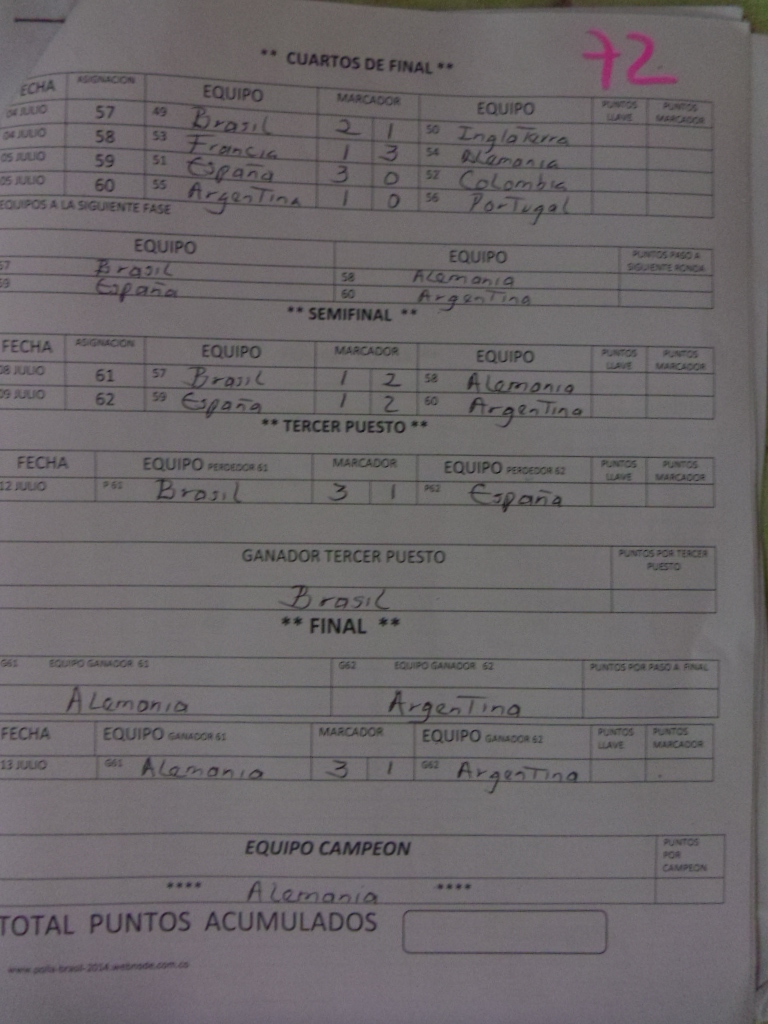 ** CUARTOS DE FINAL **
72
ECHA ASIGNACION EQUIPO MARCADOR EQUIPO PUNTOS LLAVE PUNTOS MARCADOR
04 JULIO 57 49 Brasil 2 1 50 Inglaterra
04 JULIO 58 53 Francia 1 3 54 Alemania
05 JULIO 59 51 España 3 0 52 Colombia
05 JULIO 60 55 Argentina 1 0 56 Portugal
EQUIPOS A LA SIGUIENTE FASE
EQUIPO EQUIPO PUNTOS PASO A SIGUIENTE RONDA
57 Brasil 58 Alemania
59 España 60 Argentina
** SEMIFINAL **
FECHA ASIGNACION EQUIPO MARCADOR EQUIPO PUNTOS LLAVE PUNTOS MARCADOR
08 JULIO 61 57 Brasil 1 2 58 Alemania
09 JULIO 62 59 España 1 2 60 Argentina
** TERCER PUESTO **
FECHA EQUIPO PERDEDOR 61 MARCADOR EQUIPO PERDEDOR 62 PUNTOS LLAVE PUNTOS MARCADOR
12 JULIO P 61 Brasil 3 1 P62 España
GANADOR TERCER PUESTO PUNTOS POR TERCER PUESTO
Brasil
** FINAL **
G61 EQUIPO GANADOR 61 G62 EQUIPO GANADOR 62 PUNTOS POR PASO A FINAL
Alemania Argentina
FECHA EQUIPO GANADOR 61 MARCADOR EQUIPO GANADOR 62 PUNTOS LLAVE PUNTOS MARCADOR
13 JULIO G61 Alemania 3 1 G62 Argentina
EQUIPO CAMPEON PUNTOS POR CAMPEON
**** Alemania ****
TOTAL PUNTOS ACUMULADOS
www.polla-brasil-2014.webnode.com.co